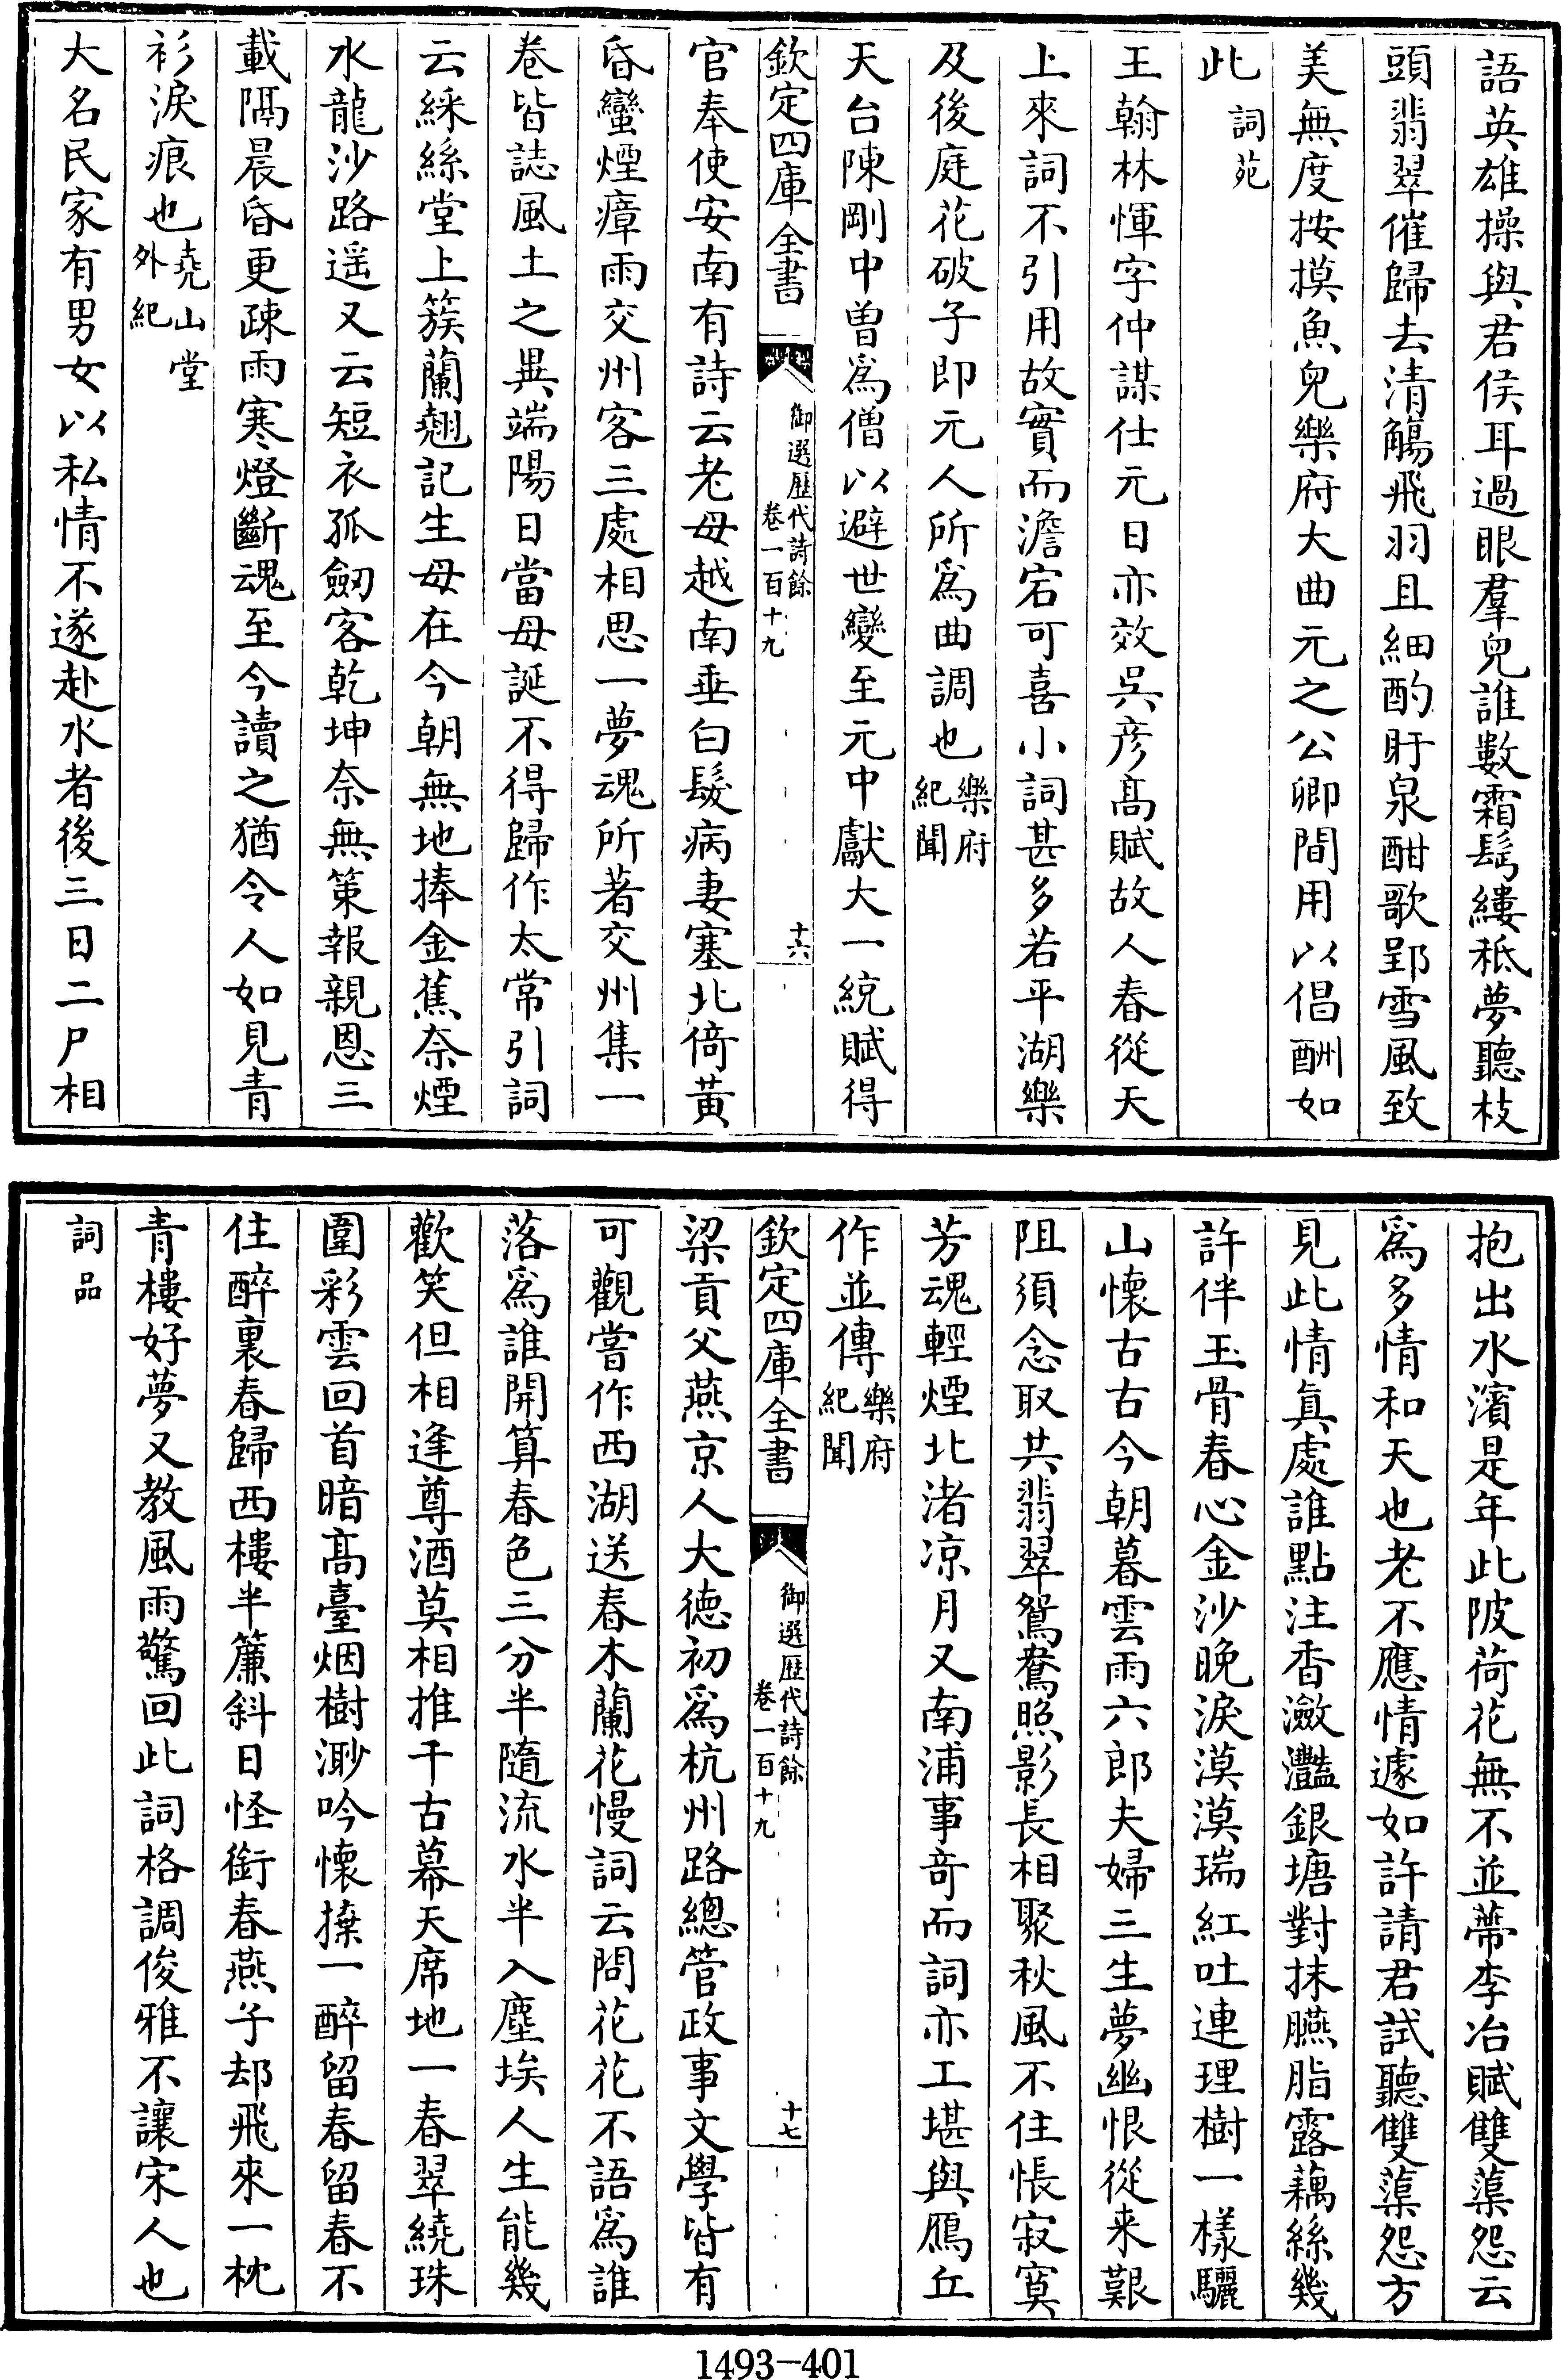 語英雄操與君侯耳過眼羣兒誰數霜髩縷秪夢聽枝
頭翡翠催歸去清觴飛羽且細酌盱泉酣歌郢雪風致
美無度按摸魚兒樂府大曲元之公卿間用以倡酬如
此詞苑
王翰林惲字仲謀仕元日亦效吳彦髙賦故人春從天
上來詞不引用故實而澹宕可喜小詞甚多若平湖樂
及後庭花破子即元人所爲曲調也樂府紀聞
天台陳剛中曾爲僧以避世變至元中獻大一統賦得
欽定四庫全書
御選歴代詩餘
卷一百十九
十六
官奉使安南有詩云老母越南垂白髮病妻塞北倚黃
昏蠻煙瘴雨交州客三處相思一夢魂所著交州集一
卷皆誌風土之異端陽日當母誕不得歸作太常引詞
云綵絲堂上簇蘭翹記生母在今朝無地捧金蕉奈煙
水龍沙路遥又云短衣孤劒客乾坤奈無策報親恩三
載隔晨昏更疎雨寒燈斷魂至今讀之猶令人如見青
衫淚痕也堯山堂外紀
大名民家有男女以私情不遂赴水者後三日二尸相
抱出水濱是年此陂荷花無不並蔕李冶賦雙蕖怨云
爲多情和天也老不應情遽如許請君試聽雙蕖怨方
見此情眞處誰點注香瀲灩銀塘對抹臙脂露藕絲幾
許伴玉骨春心金沙晚淚漠漠瑞紅吐連理樹一樣驪
山懷古古今朝暮雲雨六郎夫婦三生夢幽恨從来艱
阻須念取共翡翠鴛鴦照影長相聚秋風不住悵寂寞
芳魂輕煙北渚凉月又南浦事竒而詞亦工堪與鴈丘
作並傳樂府紀聞
欽定四庫全書
御選歴代詩餘
卷一百十九
十七
梁貢父燕京人大徳初爲杭州路總管政事文學皆有
可觀嘗作西湖送春木蘭花慢詞云問花花不語爲誰
落爲誰開算春色三分半隨流水半入塵埃人生能幾
歡笑但相逢尊酒莫相推千古幕天席地一春翠繞珠
圍彩雲回首暗髙臺烟樹渺吟懷拚一醉留春留春不
住醉裏春歸西樓半簾斜日怪銜春燕子却飛來一枕
青樓好夢又教風雨驚回此詞格調俊雅不讓宋人也
詞品
1493-401